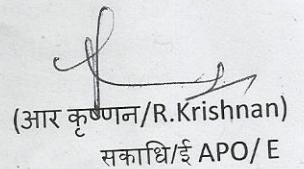 (आर कृष्णन/R.Krishnan)
सकाधि/ई APO/ E